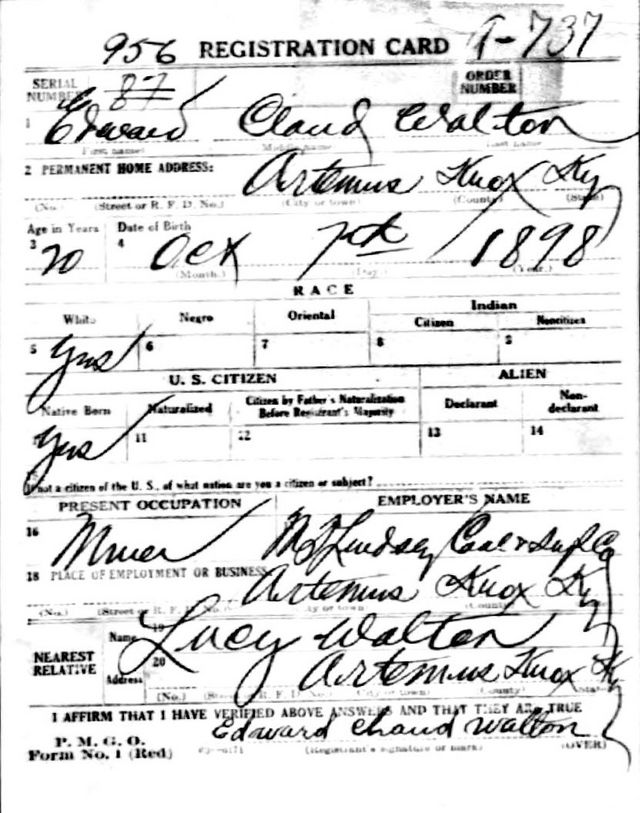 956 REGISTRATION CARD
SERIAL NUMBER 87 ORDER NUMBER
1 Edward Claud Walton
(First name) (Middle name) (Last name)
2 PERMANENT HOME ADDRESS: Artemus Knox Ky
(No.) (Street or R. F. D. No.) (City or town) (County) (State)
Age in Years Date of Birth
3 20 4 Oct 1898
(Month.) (Day.) (Year.)
RACE
White Negro Oriental Indian
Citizen Noncitizen
5 Yes 6 7 8 9
U. S. CITIZEN ALIEN
Native Born Naturalized Citizen by Father's Naturalization Before Registrant's Majority Declarant Non-declarant
Yes 11 12 13 14
If not a citizen of the U. S., of what nation are you a citizen or subject?
PRESENT OCCUPATION EMPLOYER'S NAME
16 Miner Lindsey Coal
18 PLACE OF EMPLOYMENT OR BUSINESS Artemus Knox Ky
(No.) (Street or R. F. D. No.) (City or town) (County)
NEAREST RELATIVE Name 19 Lucy Walton
Address 20 Artemus Knox Ky
(No.) (Street or R. F. D. No.) (City or town) (County) (State)
I AFFIRM THAT I HAVE VERIFIED ABOVE ANSWERS AND THAT THEY ARE TRUE
Edward Claud Walton
P. M. G. O.
Form No. 1 (Red) (Registrant's signature or mark) (OVER)